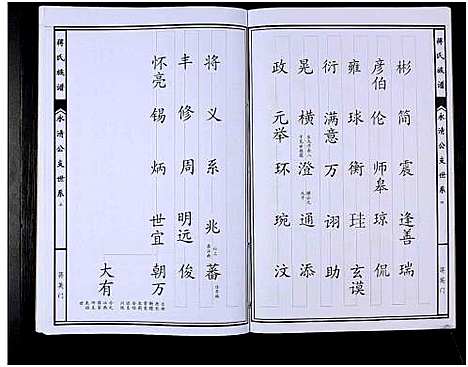 蒋氏族谱
永清公支世系
彬 简 震 逢善 瑞
彦伯 伦 师皋 琼 侃
雍 球 衡 珪 玄谟
衍 满意 万 诩 助
晃 横 澄 通 添
政 元举 环 琬 汶
将 义 系 兆 蕃
丰 修 周 明远 俊
怀亮 锡 炳 世宜 朝万
大有
蒋氏族谱
永清公支世系